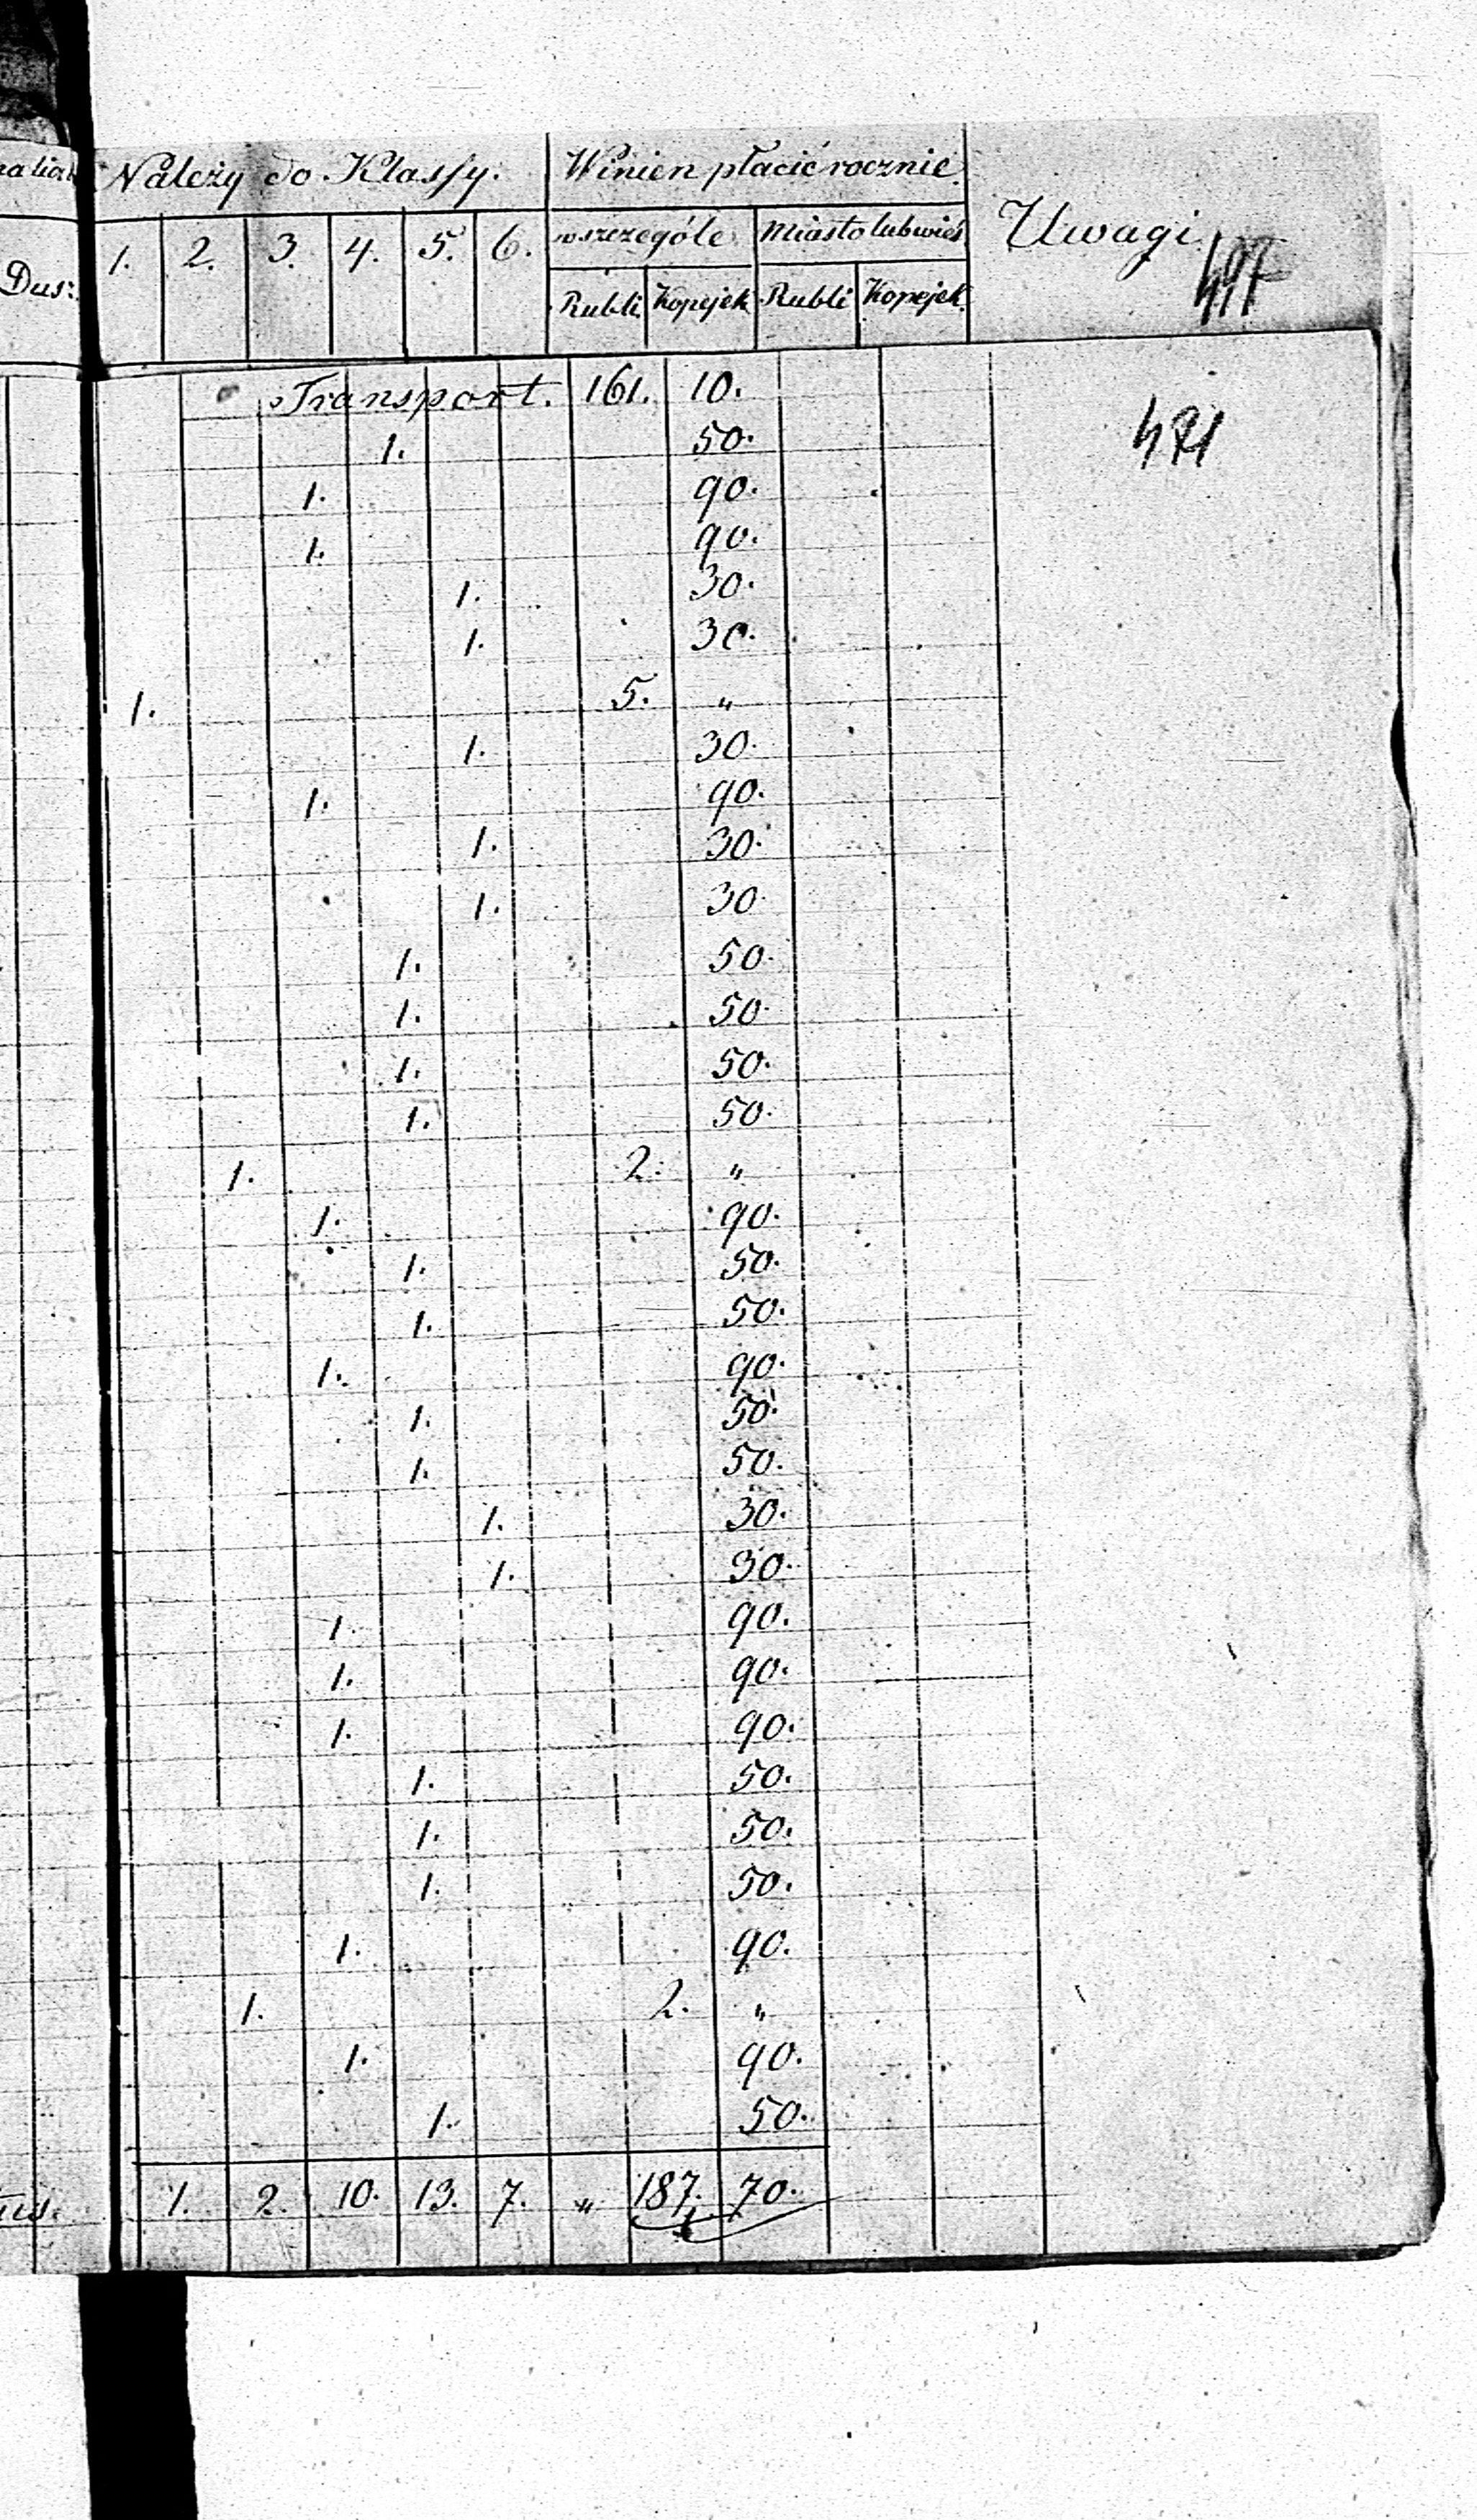 Należy do Klassy. Winien płacić rocznie. Uwagi
Dus: 1. 2. 3. 4. 5. 6. wszczególe Miasto lub wieś
Rubli Kopejek Rubli Kopejek
Transport. 161. 10.
1. 50.
1. 90.
1. 90.
1. 30.
1. 30.
1. 5. „
1. 30.
1. 90.
1. 30.
1. 30.
1. 50.
1. 50.
1. 50.
1. 50.
1. 2. „
1. 90.
1. 50.
1. 50.
1. 90.
1. 50.
1. 50.
1. 30.
1. 30.
1. 90.
1. 90.
1. 90.
1. 50.
1. 50.
1. 50.
1. 90.
1. 2. „
1. 90.
1. 50.
1. 2. 10. 13. 7. „ 187. 70.